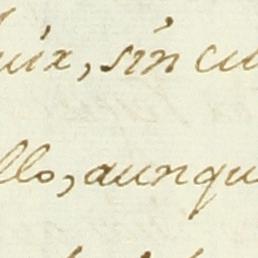 uix, sin cu
llo, aunqu